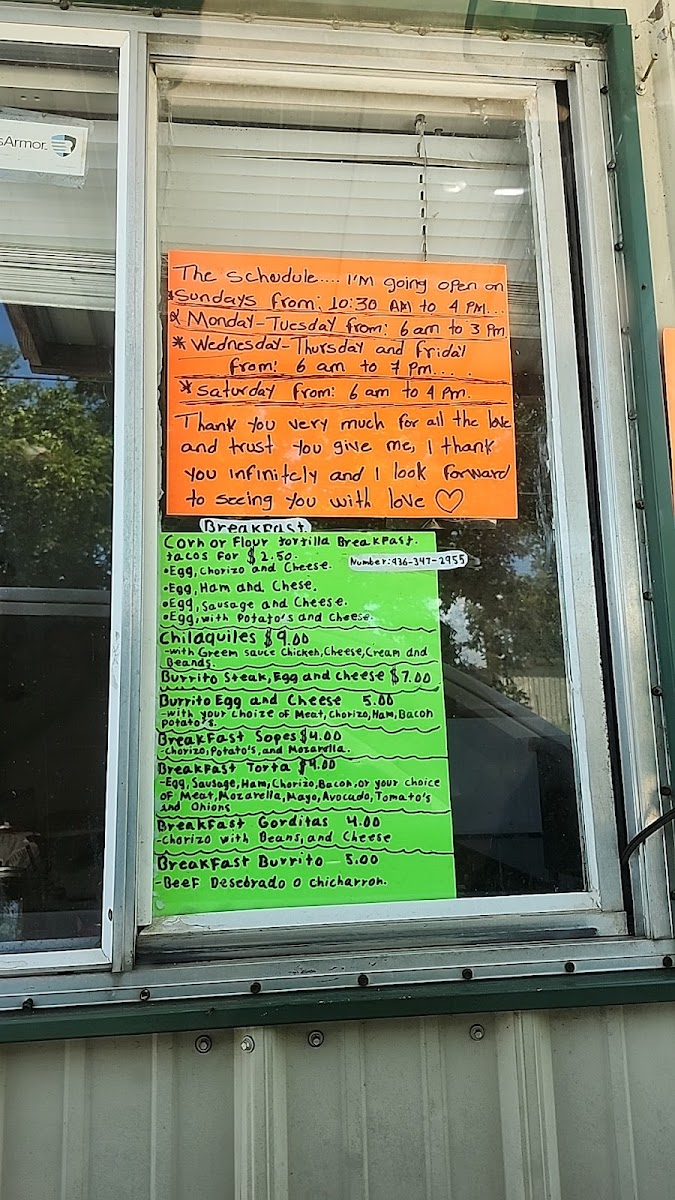 sArmor
The schedule.... I'm going open on
*Sundays from: 10:30 AM to 4 PM...
* Monday-Tuesday from: 6 am to 3 Pm
* Wednesday-Thursday and friday
from: 6 am to 7 pm....
* Saturday from: 6 am to 4 Pm.
Thank you very much for all the love
and trust you give me, I thank
you infinitely and I look forward
to seeing you with love ♡
Breakfast
Corn or Flour tortilla Breakfast.
tacos for $2.50.
Number: 936-347-2955
•Egg, Chorizo and Cheese.
•Egg, Ham and Chese.
•Egg, Sausage and Cheese.
•Egg, with Potato's and Cheese.
Chilaquiles $9.00
-with Greem sauce Chicken, Cheese, Cream and
Beands.
Burrito Steak, Egg and cheese $7.00
Burrito Egg and Cheese 5.00
-with your choize of Meat, Chorizo, Ham, Bacon
Potato's.
Breakfast Sopes $4.00
-Chorizo, Potato's, and Mozarella.
Breakfast Torta $9.00
-Egg, Sausage, Ham, Chorizo, Bacon, or your choice
of Meat, Mozarella, Mayo, Avocado, Tomato's
and Onions
Breakfast Gorditas 4.00
-Chorizo with Beans, and Cheese
Breakfast Burrito 5.00
-Beef Desebrado o chicharron.